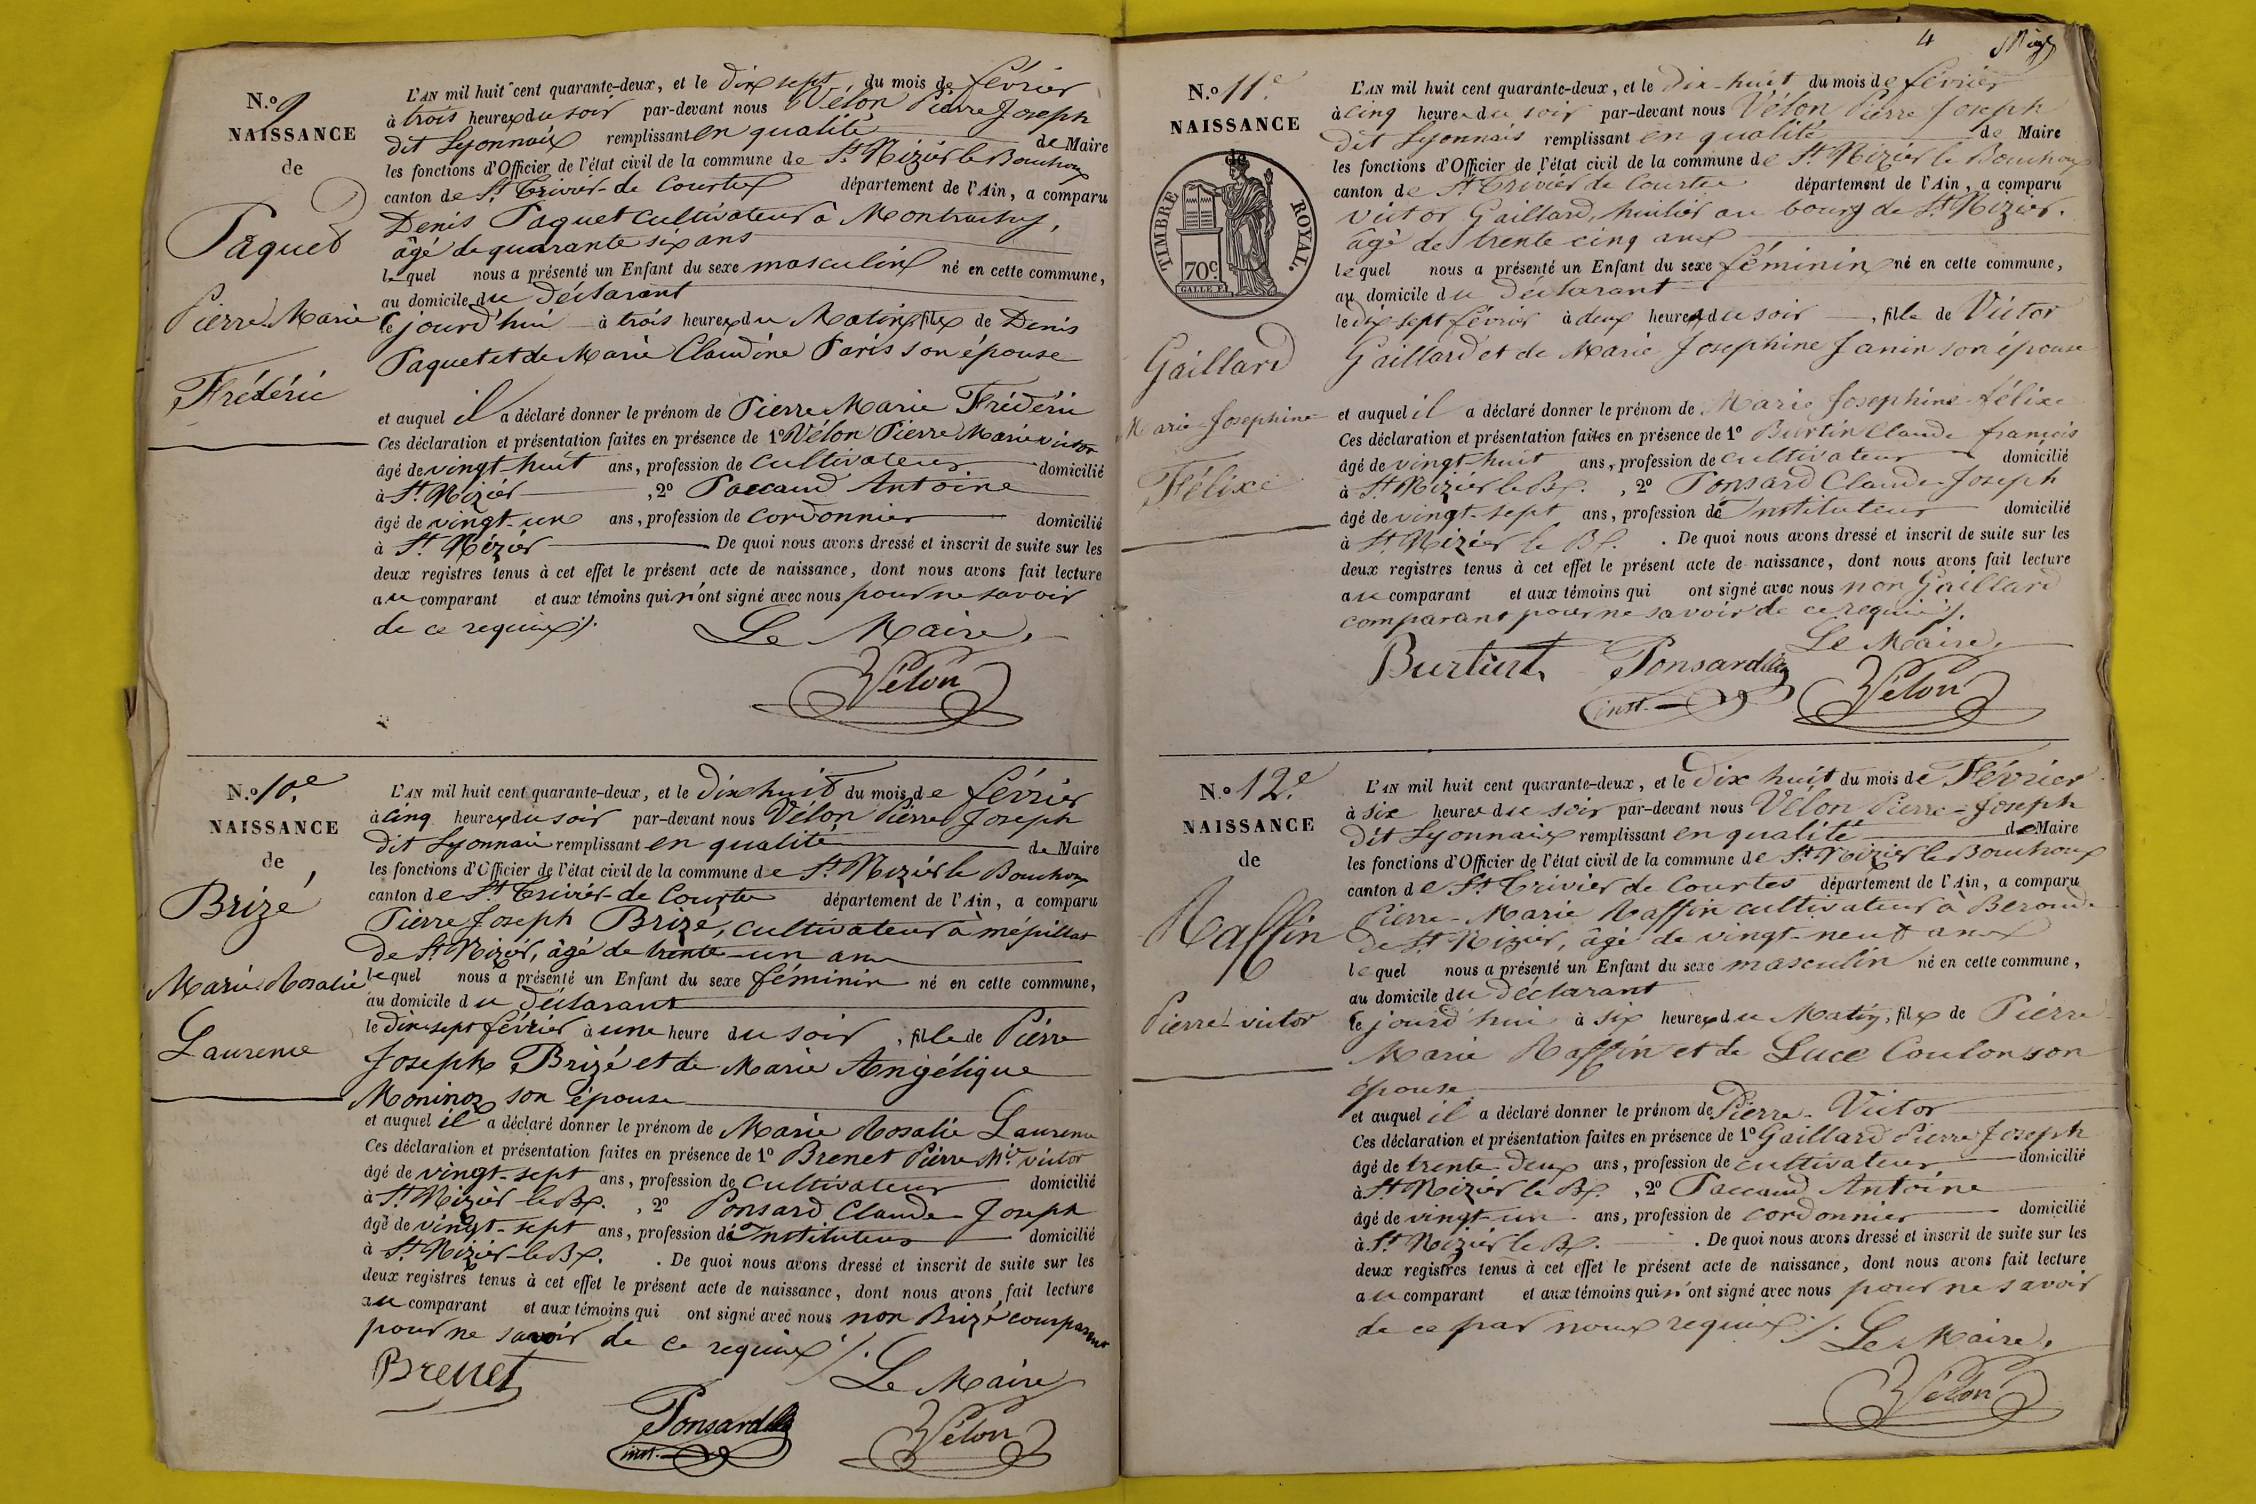 N.º 9
NAISSANCE
de
Paquet
Pierre Marie
Frédéric
L'AN mil huit cent quarante-deux, et le Dix sept du mois de février
à trois heures du soir par-devant nous Vélon Pierre Joseph
dit Lyonnais remplissant en qualité de Maire
les fonctions d'Officier de l'état civil de la commune de St Nizier le Bouchoux
canton de St Trivier de Courtes département de l'Ain, a comparu
Denis Paquet cultivateur à Montrachy,
âgé de quarante six ans
lequel nous a présenté un Enfant du sexe masculin né en cette commune,
au domicile du déclarant
le jourd'hui à trois heures du Matin, fils de Denis
Paquet et de Marie Claudine Paris son épouse
et auquel il a déclaré donner le prénom de Pierre Marie Frédéric
Ces déclaration et présentation faites en présence de 1º Vélon Pierre Marie victor
âgé de vingt huit ans, profession de cultivateur domicilié
à St Nizier , 2º Paccaud Antoine
âgé de vingt-un ans, profession de cordonnier domicilié
à St Nizier De quoi nous avons dressé et inscrit de suite sur les
deux registres tenus à cet effet le présent acte de naissance, dont nous avons fait lecture
au comparant et aux témoins qui n'ont signé avec nous pour ne savoir
de ce requis ./.
Le Maire,
Vélon
N.º 10e.
NAISSANCE
de
Brizé
Marie Rosalie
Laurence
L'AN mil huit cent quarante-deux, et le Dix huit du mois de février
à cinq heures du soir par-devant nous Vélon Pierre Joseph
dit Lyonnais remplissant en qualité de Maire
les fonctions d'Officier de l'état civil de la commune de St Nizier le Bouchoux
canton de St Trivier de Courtes département de l'Ain, a comparu
Pierre Joseph Brizé, cultivateur à mépillat
de St Nizier, âgé de trente-un ans
lequel nous a présenté un Enfant du sexe féminin né en cette commune,
au domicile du déclarant
le dix sept février à une heure du soir, fille de Pierre
Joseph Brizé et de Marie Angélique
Moninoz son épouse
et auquel il a déclaré donner le prénom de Marie Rosalie Laurence
Ces déclaration et présentation faites en présence de 1º Brenet Pierre Mie victor
âgé de vingt-sept ans, profession de cultivateur domicilié
à St Nizier le Bx. , 2º Ponsard Claude Joseph
âgé de vingt-sept ans, profession de Instituteur domicilié
à St Nizier-le Bx. . De quoi nous avons dressé et inscrit de suite sur les
deux registres tenus à cet effet le présent acte de naissance, dont nous avons fait lecture
au comparant et aux témoins qui ont signé avec nous non Brizé comparant
pour ne savoir de ce requis ./.
Brenet
Le Maire
Ponsard
inst.
Vélon
4
N.º 11e.
NAISSANCE
TIMBRE ROYAL.
70c
GALLE F.
Gaillard
Marie Josephine
Félixe
L'AN mil huit cent quarante-deux, et le Dix-huit du mois de février
à cinq heures du soir par-devant nous Vélon Pierre Joseph
dit Lyonnais remplissant en qualité de Maire
les fonctions d'Officier de l'état civil de la commune de St Nizier le Bouchoux
canton de St Trivier de Courtes département de l'Ain, a comparu
victor Gaillard, huilier au bourg de St Nizier.
âgé de trente cinq ans
lequel nous a présenté un Enfant du sexe féminin né en cette commune,
au domicile du déclarant
le dix sept février à deux heures du soir, fille de Victor
Gaillard et de Marie Josephine Janin son épouse
et auquel il a déclaré donner le prénom de Marie Josephine félixe
Ces déclaration et présentation faites en présence de 1º Burtin Claude françois
âgé de vingt-huit ans, profession de cultivateur domicilié
à St Nizier le Bx. , 2º Ponsard Claude Joseph
âgé de vingt-sept ans, profession de Instituteur domicilié
à St Nizier le Bx. . De quoi nous avons dressé et inscrit de suite sur les
deux registres tenus à cet effet le présent acte de naissance, dont nous avons fait lecture
au comparant et aux témoins qui ont signé avec nous non Gaillard
comparant pour ne savoir de ce requis ./.
Le Maire,
Burtin Ponsard
inst. Vélon
N.º 12e.
NAISSANCE
de
Raffin
Pierre victor
L'AN mil huit cent quarante-deux, et le Dix huit du mois de Février
à six heures du soir par-devant nous Vélon Pierre-Joseph
dit Lyonnais remplissant en qualité de Maire
les fonctions d'Officier de l'état civil de la commune de St Nizier le Bouchoux
canton de St Trivier de Courtes département de l'Ain, a comparu
Pierre-Marie Raffin cultivateur à Beroude
de St Nizier, âgé de vingt-neuf ans
lequel nous a présenté un Enfant du sexe masculin né en cette commune,
au domicile du déclarant
le jourd'hui à six heures du Matin, fils de Pierre
Marie Raffin et de Luce Coulon son
épouse
et auquel il a déclaré donner le prénom de Pierre-Victor
Ces déclaration et présentation faites en présence de 1º Gaillard Pierre Joseph
âgé de trente-deux ans, profession de cultivateur domicilié
à St Nizier le Bx. , 2º Paccaud Antoine
âgé de vingt-un ans, profession de cordonnier domicilié
à St Nizier le Bx. . De quoi nous avons dressé et inscrit de suite sur les
deux registres tenus à cet effet le présent acte de naissance, dont nous avons fait lecture
au comparant et aux témoins qui n'ont signé avec nous pour ne savoir
de ce par nous requis ./.
Le Maire,
Vélon